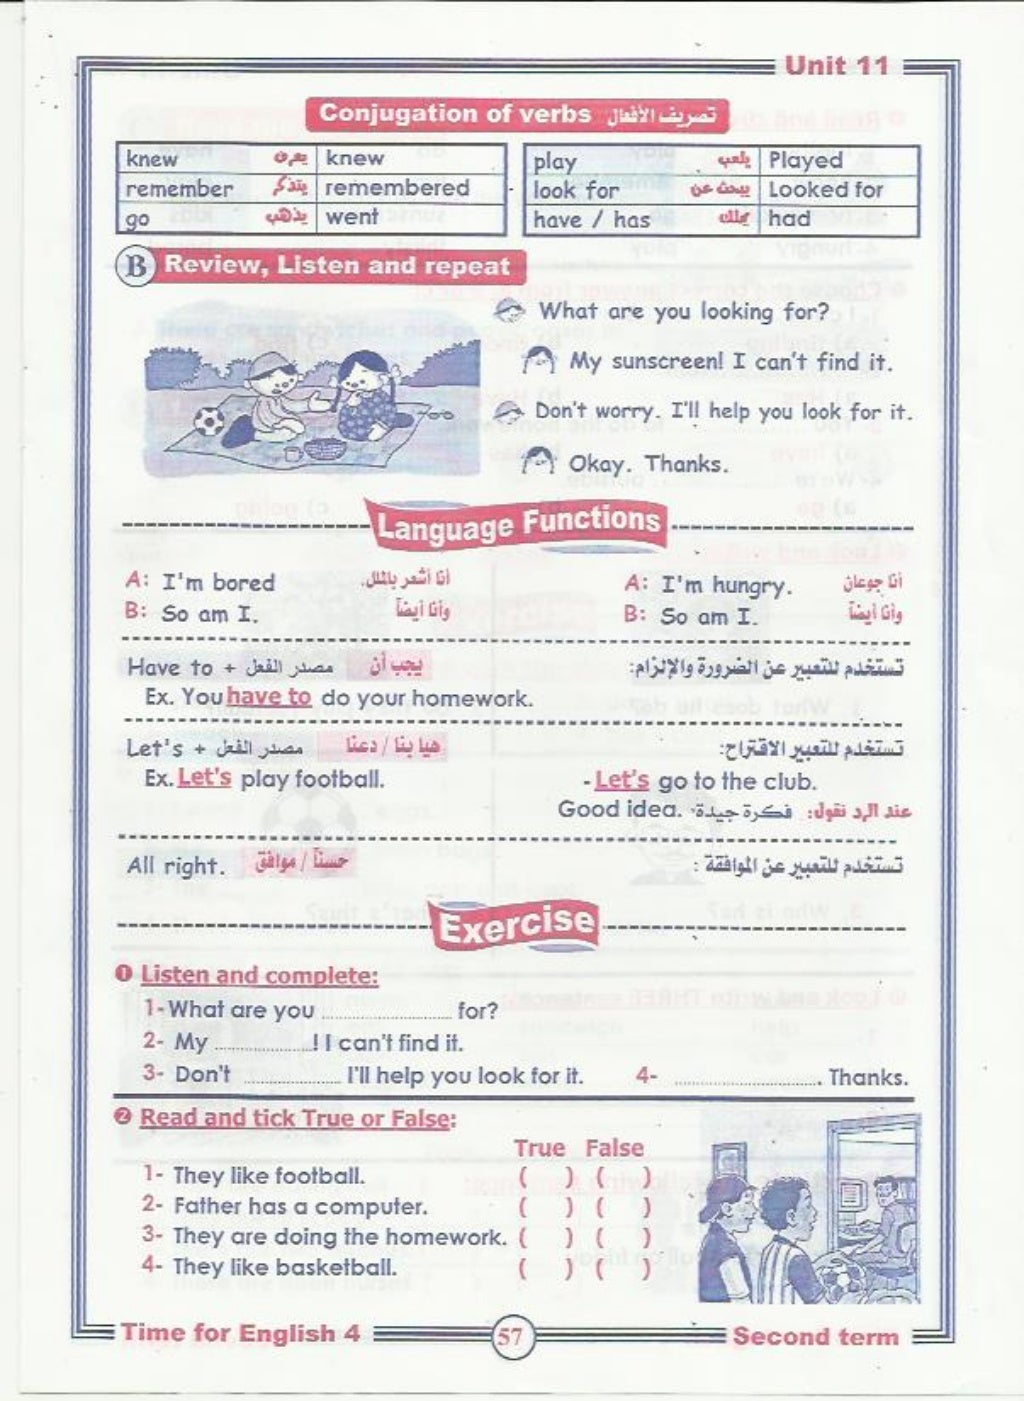 Unit 11
Conjugation of verbs تصريف الأفعال
knew يعرف knew
remember يتذكر remembered
go يذهب went
play يلعب Played
look for يبحث عن Looked for
have / has يملك had
B Review, Listen and repeat
What are you looking for?
My sunscreen! I can't find it.
Don't worry. I'll help you look for it.
Okay. Thanks.
Language Functions
A: I'm bored أنا أشعر بالملل.
B: So am I. وأنا أيضاً
A: I'm hungry. أنا جوعان
B: So am I. وأنا أيضاً
Have to + مصدر الفعل يجب أن تستخدم للتعبير عن الضرورة والإلزام:
Ex. You have to do your homework.
Let's + مصدر الفعل هيا بنا / دعنا تستخدم للتعبير الاقتراح:
Ex. Let's play football. - Let's go to the club.
Good idea. فكرة جيدة عند الرد نقول:
All right. حسناً / موافق تستخدم للتعبير عن الموافقة :
Exercise
❶ Listen and complete:
1- What are you .................... for?
2- My ...............! I can't find it.
3- Don't ............... I'll help you look for it. 4- ....................... Thanks.
❷ Read and tick True or False:
True False
1- They like football. ( ) ( )
2- Father has a computer. ( ) ( )
3- They are doing the homework. ( ) ( )
4- They like basketball. ( ) ( )
Time for English 4 57 Second term